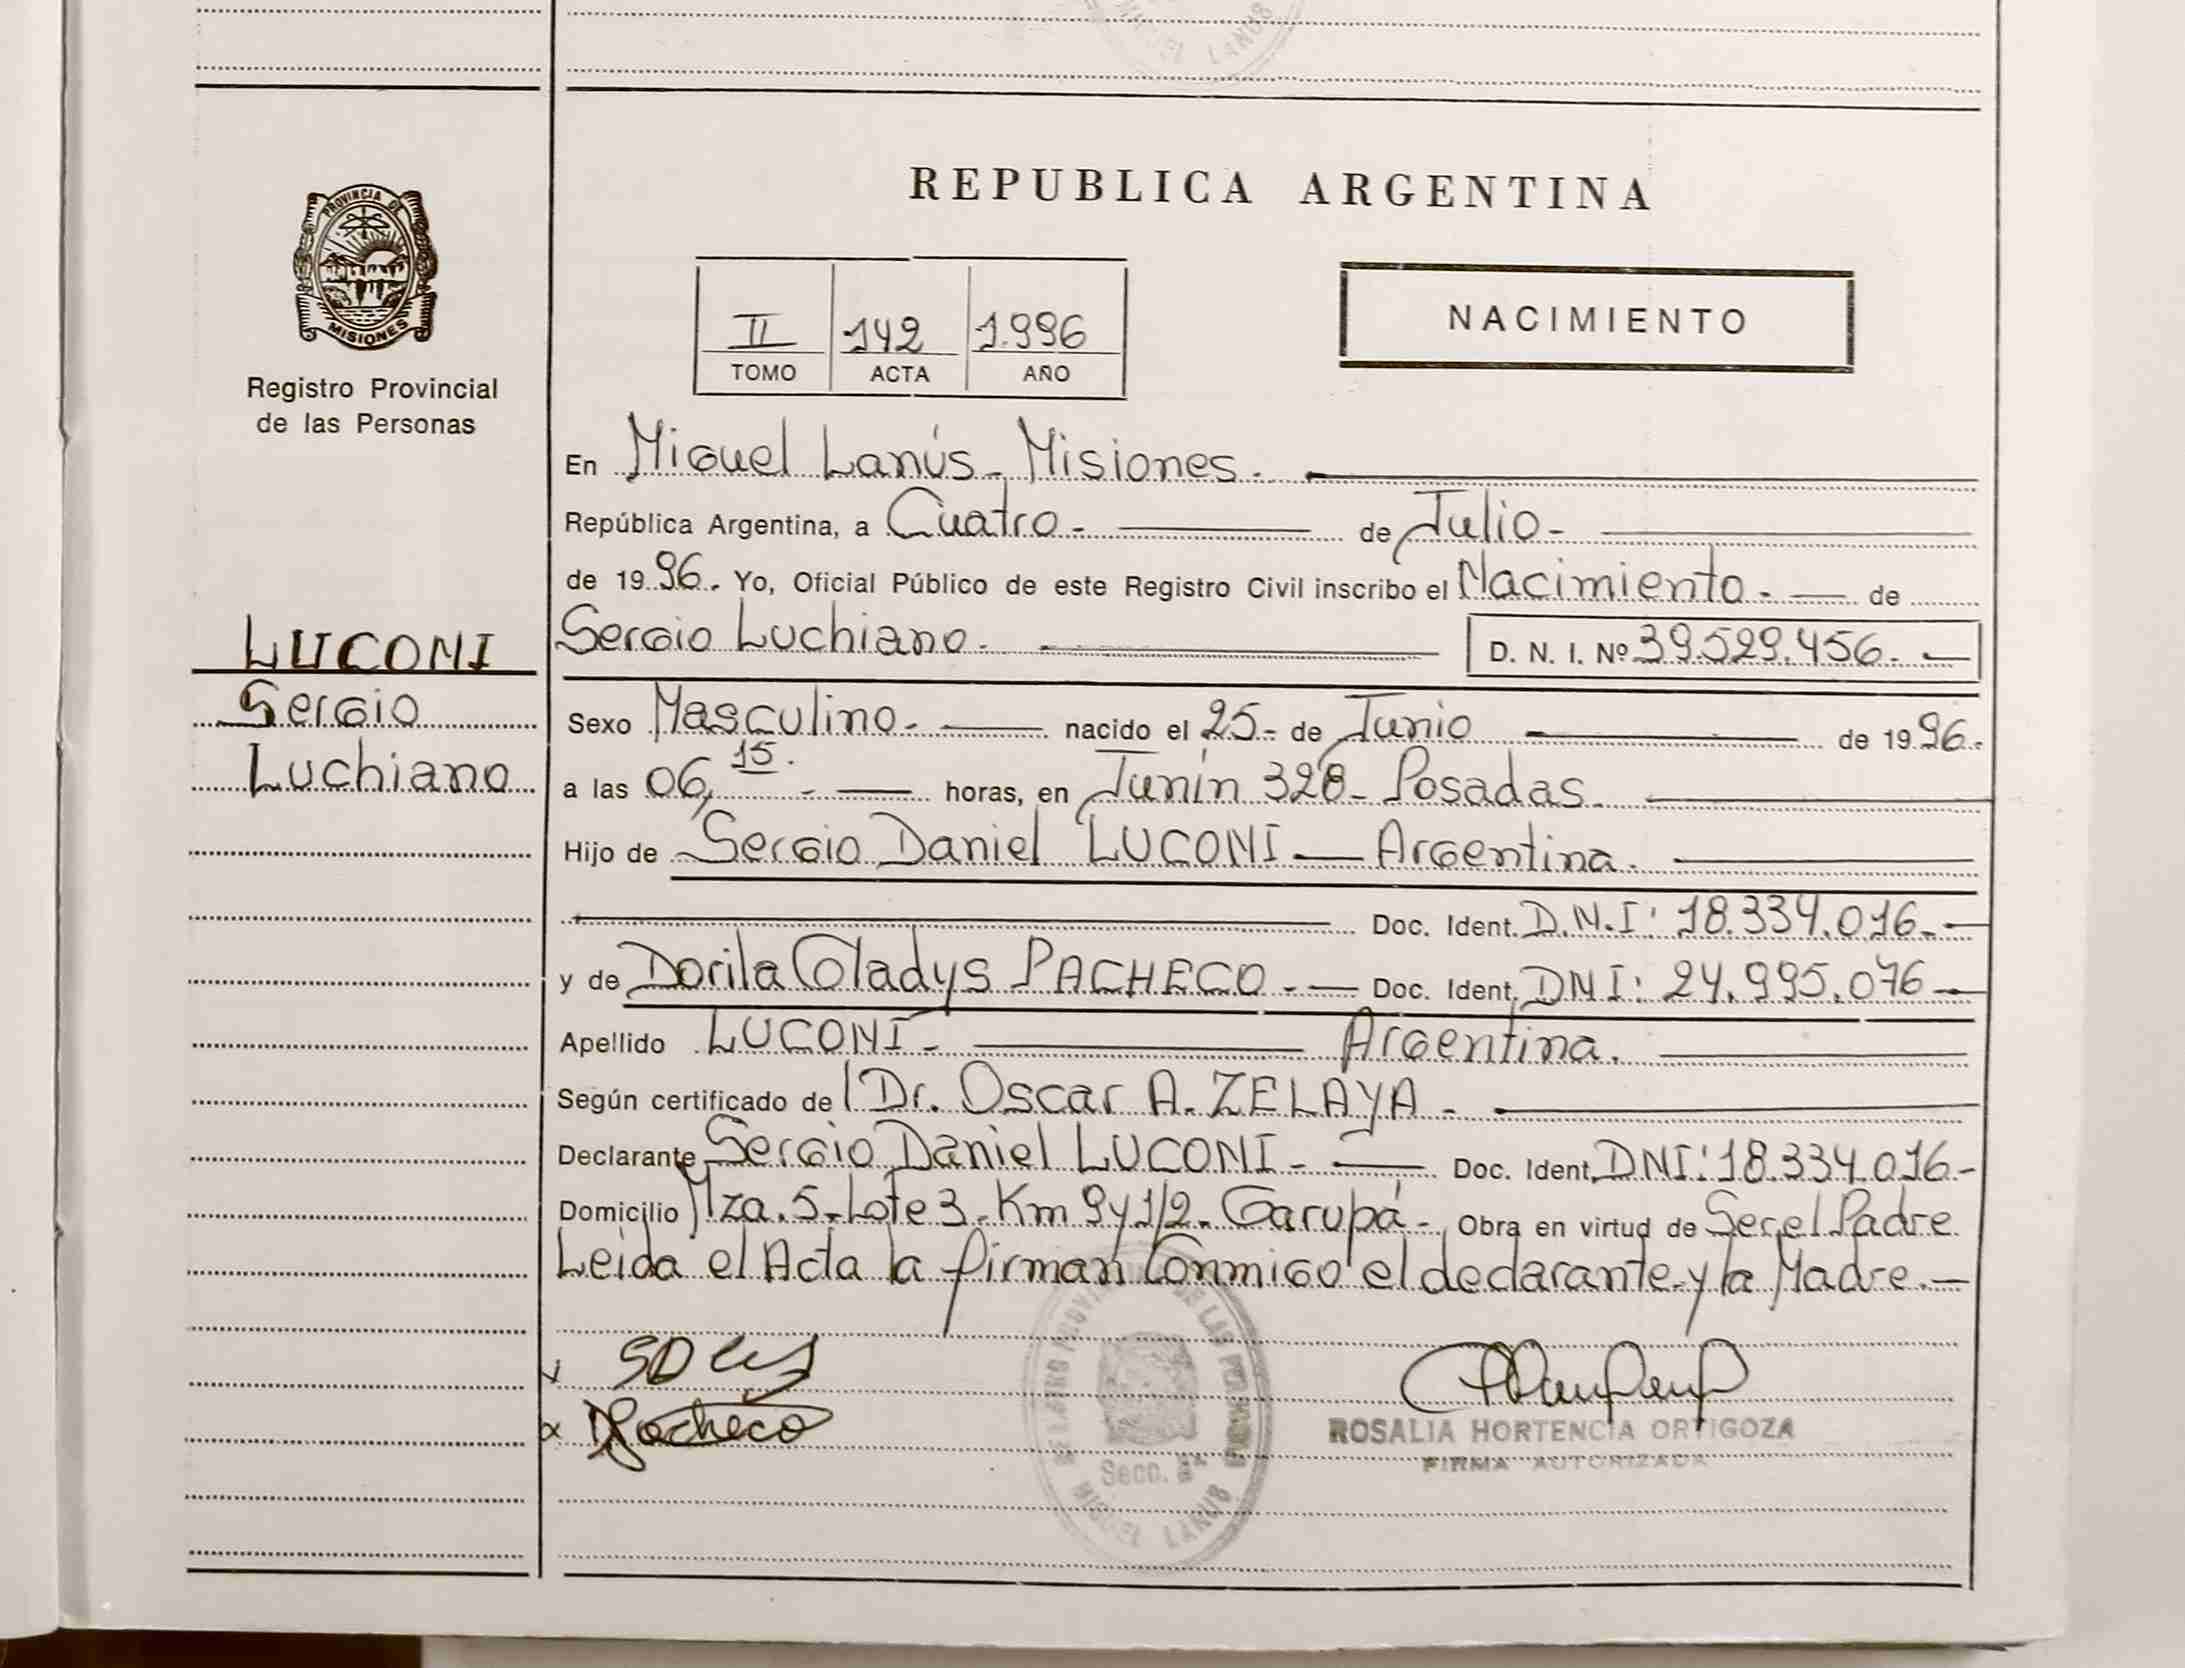 MIGUEL LANUS
REPUBLICA ARGENTINA
PROVINCIA DE
MISIONES
Registro Provincial
de las Personas
II 142 1.996
TOMO ACTA AÑO
NACIMIENTO
En Miguel Lanús - Misiones.
República Argentina, a Cuatro - de Julio -
de 1996. Yo, Oficial Público de este Registro Civil inscribo el Nacimiento - de
LUCONI
Sergio
Luchiano
Sergio Luchiano. D. N. I. Nº 39.529.456.
Sexo Masculino. nacido el 25 - de Junio de 1996.
a las 06,15. horas, en Junín 328 - Posadas.
Hijo de Sergio Daniel LUCONI — Argentina.
Doc. Ident. D.N.I: 18.334.016.
y de Dorila Gladys PACHECO. Doc. Ident. DNI: 24.995.076
Apellido LUCONI - Argentina.
Según certificado de Dr. Oscar A. ZELAYA -
Declarante Sergio Daniel LUCONI - Doc. Ident. DNI: 18.334.016 -
Domicilio Mza. 5 - Lote 3 - Km 9 y 1/2 - Garupá - Obra en virtud de Ser el Padre
Leida el Acta la firman Conmigo el declarante y la Madre.
Pacheco
ROSALIA HORTENCIA ORTIGOZA
FIRMA AUTORIZADA
Secc. 8ª
MIGUEL LANUS